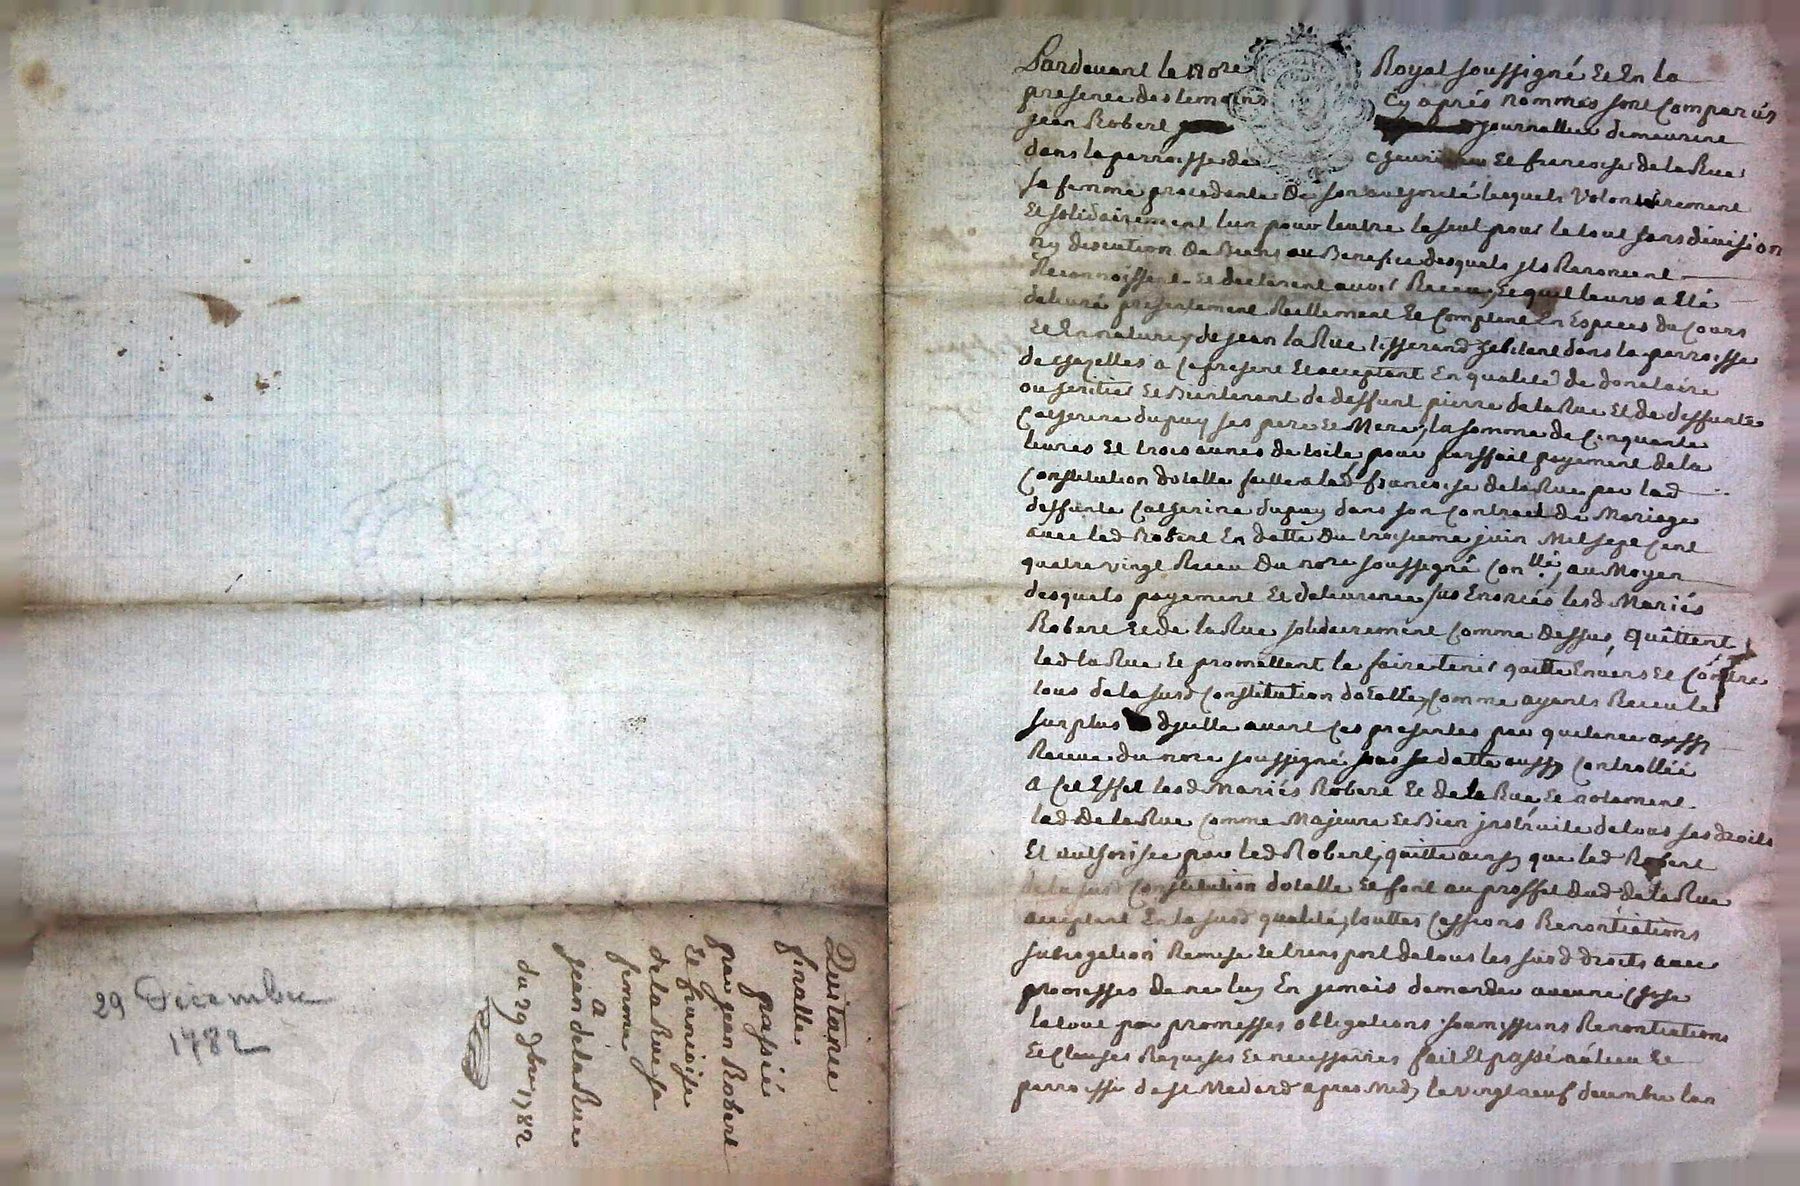 Pardevant le nore Royal soussigné Et En la
presence des temoins Cy aprés nommés sont Comparus
jean Robert journallier demeurent
dans la parroisse de Et francoise de la Rue
sa femme procedante De son authorité lesquels Volontérement
Et solidairement lun pour leutre le seul pour le tout sans division
ny discution De Biens au Benefice desquels jls Renoncent
Reconnoissent Et declarent avoir Receu, Et quil leurs a Eté
delivré presentement Reellement Et Comptent En Especes du Cours
Et En nature, de jean la Rue tisserand hebitent dans la parroisse
de Chazelles a Ce present Et acceptent En qualité de donetaire
ou heritier Et Bientenent de deffunt pierre de la Rue Et de deffunte
Catherine dupuy ses pere Et Mere, la somme de Cinquante
livres Et trois aunes de toile, pour parffait payement de la
Constitution dotalle faitte a lad francoise de la Rue par lad
deffunte Catherine dupuy dans son Contract de Mariage
avec led Robert En datte Du troisieme juin Mil sept Cent
quatre vingt Receu Du nore soussigné Conllé, au Moyen
desquels payement Et delivrence sus Enoncés lesd Mariés
Robert Et de la Rue solideirement Comme Dessus, quittent
led la Rue Et promettent le faire tenir quitte Envers Et Contre
tous de la susd Constitution dotalle, Comme ayents Receu le
surplus djcelle avent Ces presentes par quitence aussy
Receue du nore soussigné sous sa datte aussy Controllée
A Cet Effet lesd Mariés Robert Et de la Rue, Et notament
lad De la Rue Comme Majeure Et Bien jnstruite de tous ses droits
Et authorisée par led Robert, quitte ainsy que led Robert
de la susd Constitution dotalle Et font au proffet dud de la Rue
acceptent En la susd qualité, touttes Cessions Renontiations
subrogetion Remise Et trensport de tous les susd droits avec
promesses de ne luy En jamais demander aucune Chose
le tout par promesses obligations soumissions Renontiations
Et Clauses Requises Et necessaires fait Et passé au lieu Et
parroisse de st Medard apres Midy le vingt neuf decembre lan
Quitance
finalle
passée
par jean Robert
Et francoise
de la Rue sa
femme
A
jean de la Rue
du 29 Xbre 1782
29 Décembre
1782